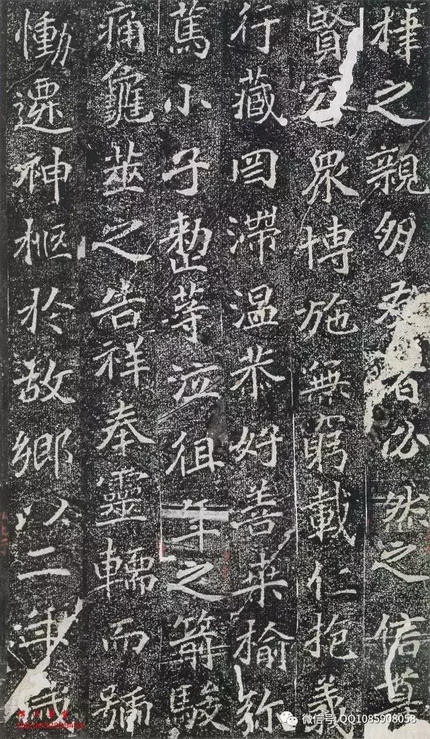 之親 必然之信尊
賢容眾博施無窮載仁抱義
行藏罔滯温恭好善桑榆弥
篤小子塾等泣徂年之箭駿
痛龜筮之告祥奉靈輀而號
慟遷神柩於故鄉以二年
微信号:QQ1085908058